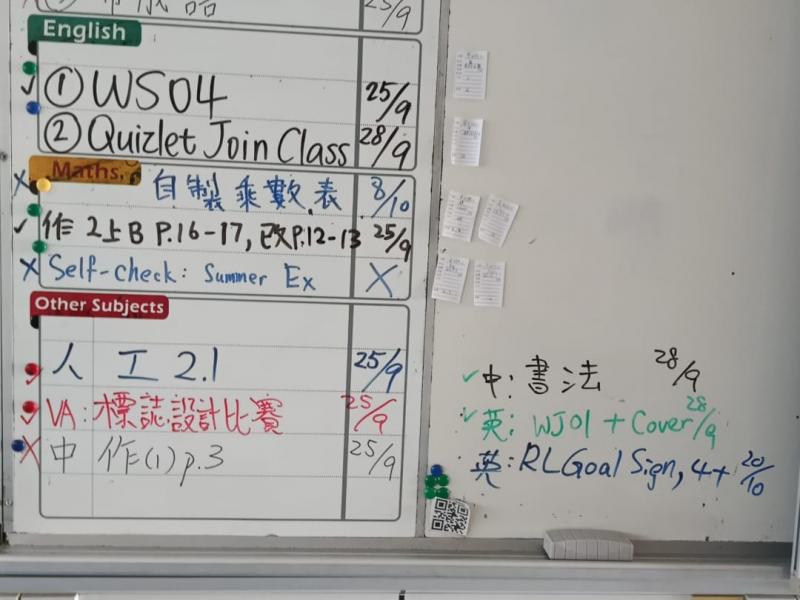 25/9
English
① WS04 25/9
② Quizlet Join Class 28/9
Maths.
自製乘數表 8/10
作 2上B P.16-17, 改P.12-13 25/9
Self-check: Summer Ex X
Other Subjects
人 工 2.1 25/9
VA: 標誌設計比賽 25/9
中 作(1) p.3 25/9
中: 書法 28/9
英: WJ01 + Cover 28/9
英: RL Goal Sign, 4+ 20/10